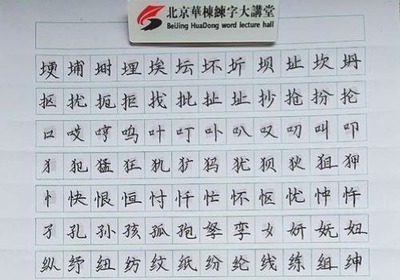 北京華棟練字大講堂
BeiJing HuaDong word lecture hall
埂埔埘埋埃坛坏圻坝址坎坍
抠扰扼拒找批扯扯抄抢扮抡
口哎哼呜叶叮卟叭叹叨叫叩
犭犯猛狂犰犷犸犹狈狄狙狎
忄快恨恒忖忏忙怀怄忧忡忤
孑孔孙孩孤孢孥孪女妍妩妯
纵纾纽纺纹纸纷纶线练组绅